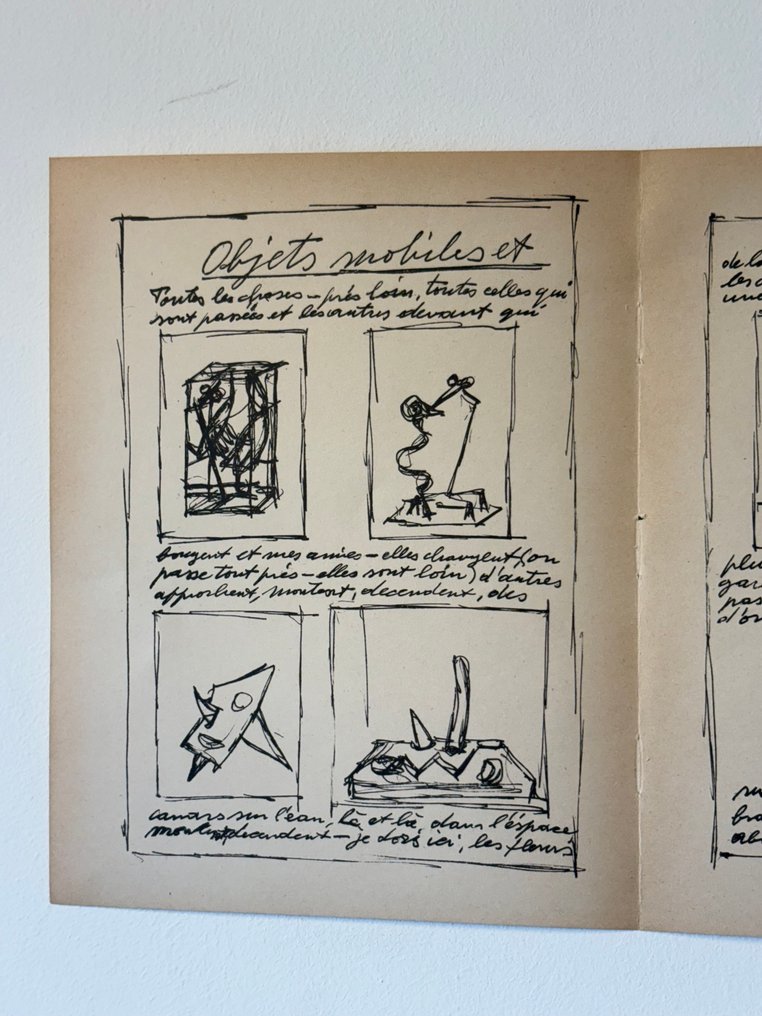 Objets mobiles et
Toutes les choses - près loin, toutes celles qui
sont passées et les autres devant qui
bougent et mes amies - elles changent (on
passe tout près - elles sont loin) d'autres
approchent, montent, decendent, des
canars sur l'eau, là et là, dans l'éspace
montent decendent - je dors ici, les fleurs
de la
une
plu
pas